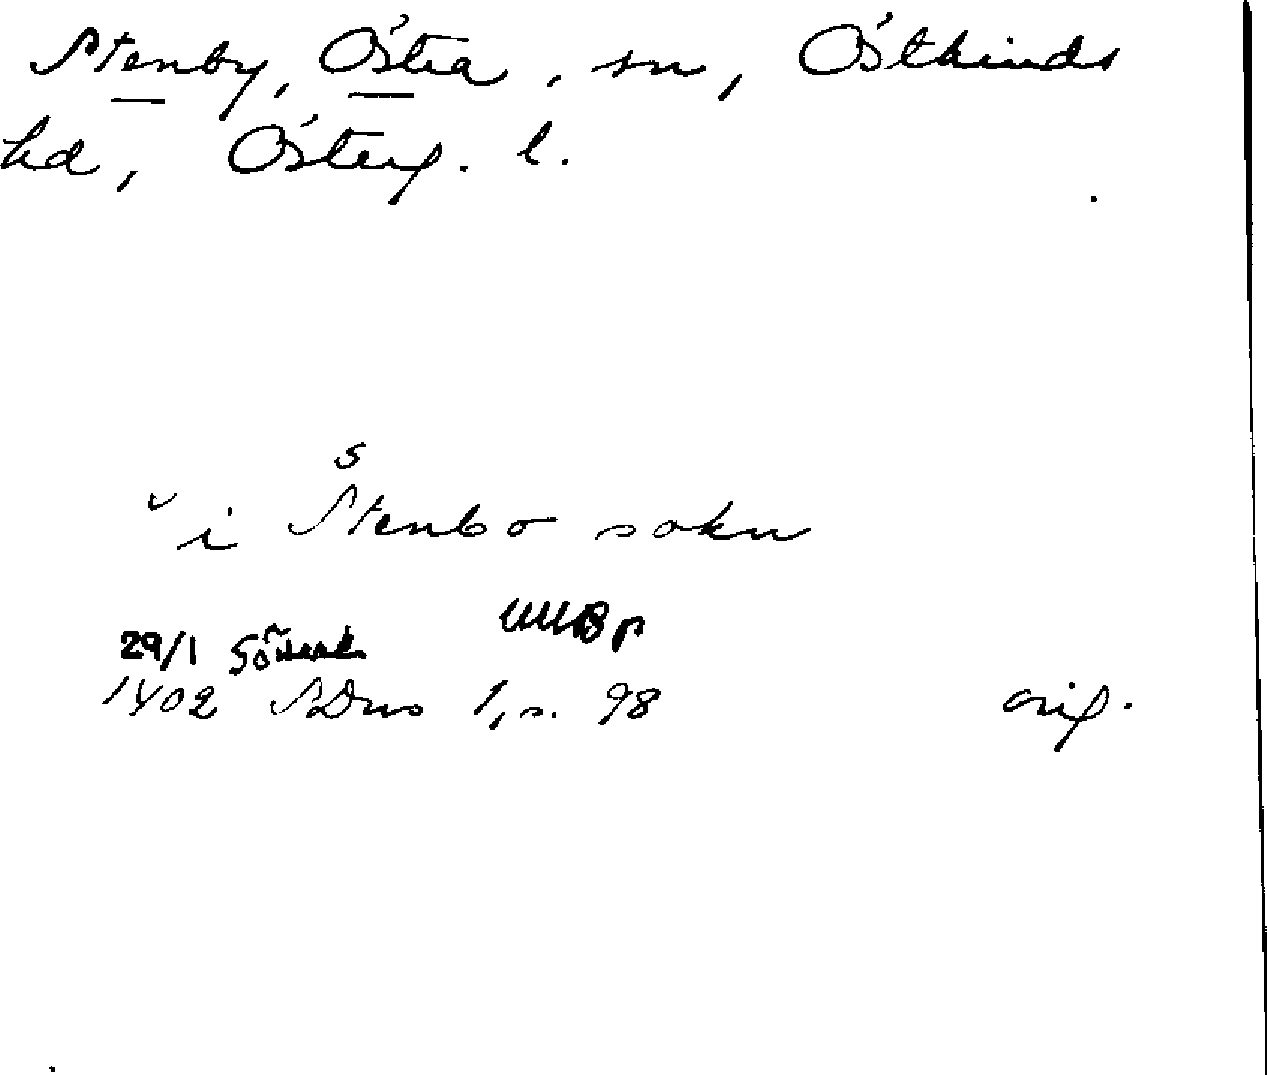 Stenby, Östra, sn, Östkinds
hd, Österg. l.
s
v i Stenbo sokn
29/1
1402 SDns 1, s. 98 orig.